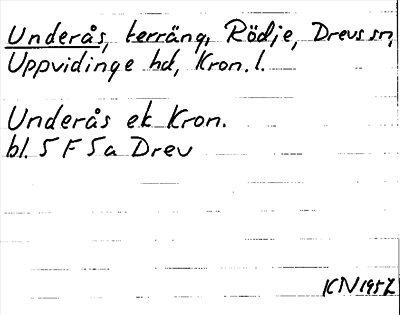 Underås, terräng, Rödje, Drevs sn,
Uppvidinge hd, Kron. l.
Underås ek Kron.
bl. 5 F 5a Drev
KN 1957